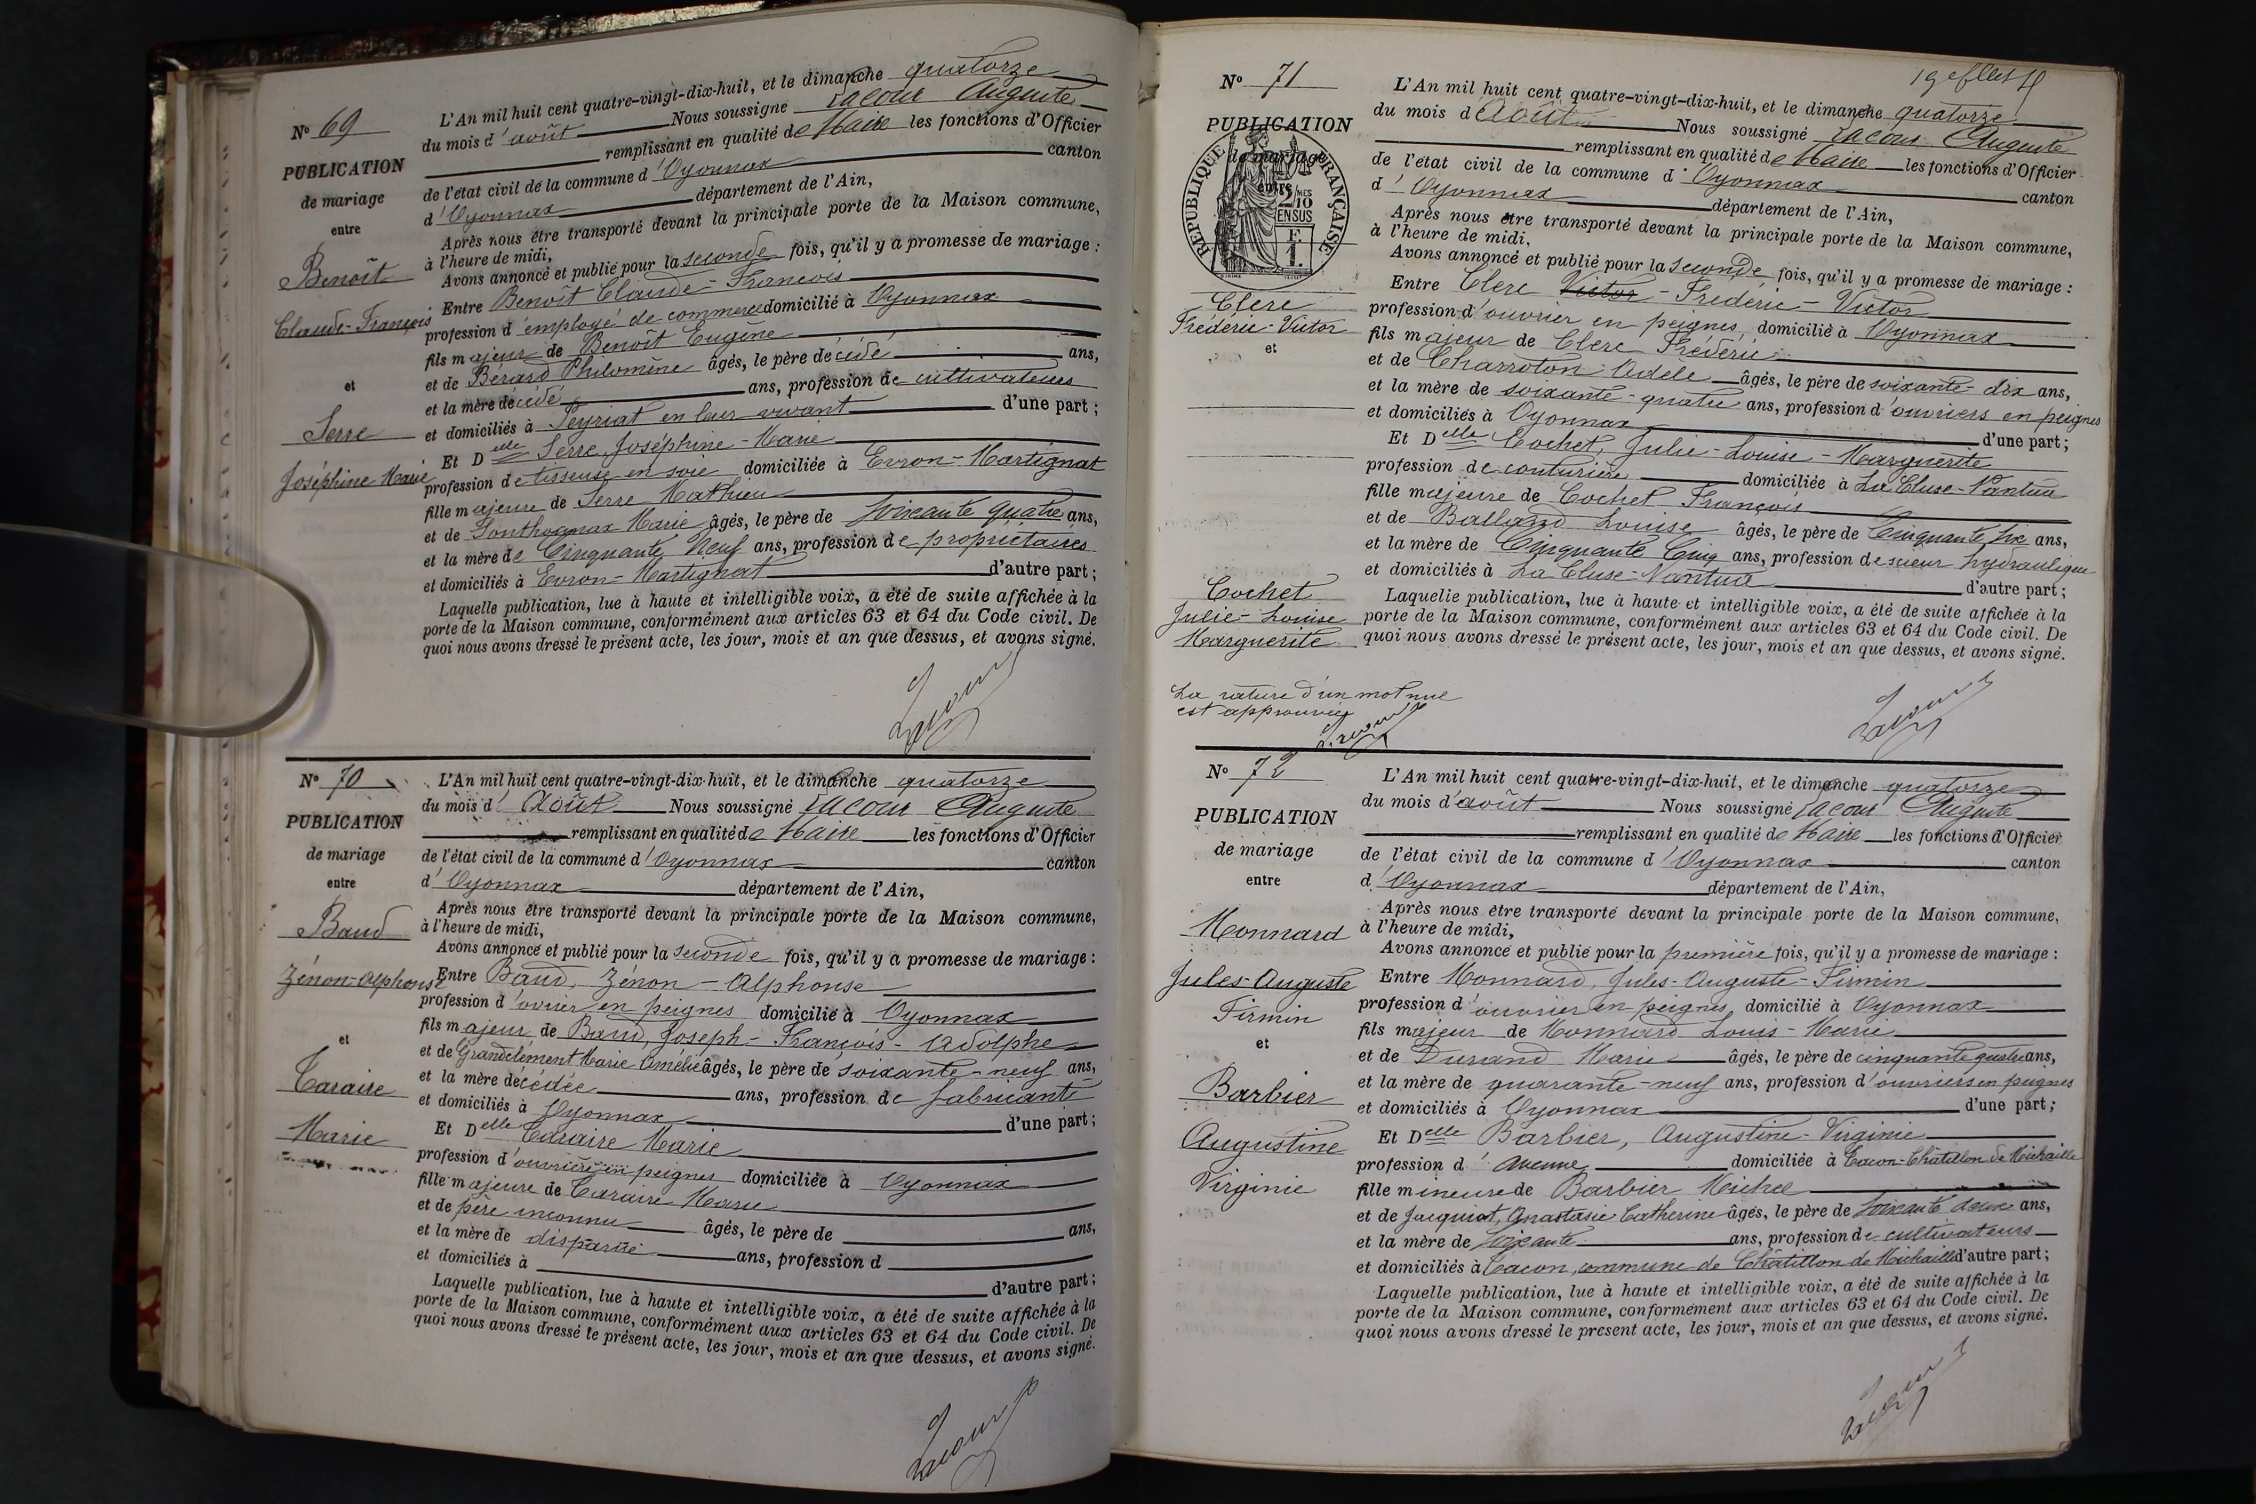 N° 69
PUBLICATION
de mariage
entre
Benoît
Claude-François
et
Serre
Joséphine Marie
L'An mil huit cent quatre-vingt-dix-huit, et le dimanche quatorze
du mois d'août Nous soussigné Lacour Auguste
remplissant en qualité de Maire les fonctions d'Officier
de l'état civil de la commune d'Oyonnax canton
d'Oyonnax département de l'Ain,
Après nous être transporté devant la principale porte de la Maison commune,
à l'heure de midi,
Avons annoncé et publié pour la seconde fois, qu'il y a promesse de mariage :
Entre Benoît Claude-François
profession d'employé de commerce domicilié à Oyonnax
fils majeur de Benoît Eugène
et de Bérard Philomène âgés, le père de décédé ans,
et la mère décédé ans, profession de cultivateurs
et domiciliés à Peyriat en leur vivant d'une part ;
Et Delle Serre, Joséphine-Marie
profession de tisseuse en soie domiciliée à Evron-Martignat
fille majeure de Serre Mathieu
et de Gonthomax Marie âgés, le père de soixante quatre ans,
et la mère de Cinquante Neuf ans, profession de propriétaires
et domiciliés à Evron-Martignat d'autre part ;
Laquelle publication, lue à haute et intelligible voix, a été de suite affichée à la
porte de la Maison commune, conformément aux articles 63 et 64 du Code civil. De
quoi nous avons dressé le présent acte, les jour, mois et an que dessus, et avons signé.
Lacour
N° 70
PUBLICATION
de mariage
entre
Baud
Zénon-Alphonse
et
Caraire
Marie
L'An mil huit cent quatre-vingt-dix-huit, et le dimanche quatorze
du mois d'Août Nous soussigné Lacour Auguste
remplissant en qualité de Maire les fonctions d'Officier
de l'état civil de la commune d'Oyonnax canton
d'Oyonnax département de l'Ain,
Après nous être transporté devant la principale porte de la Maison commune,
à l'heure de midi,
Avons annoncé et publié pour la seconde fois, qu'il y a promesse de mariage :
Entre Baud, Zénon-Alphonse
profession d'ouvrier en peignes domicilié à Oyonnax
fils majeur de Baud, Joseph-François-Adolphe
et de Grandclément Marie Amélie âgés, le père de soixante-neuf ans,
et la mère décédée ans, profession de fabricants
et domiciliés à Oyonnax d'une part ;
Et Delle Caraire Marie
profession d'ouvrière en peignes domiciliée à Oyonnax
fille majeure de Caraire Marie
et de père inconnu âgés, le père de ans,
et la mère de disparue ans, profession d
et domiciliés à d'autre part ;
Laquelle publication, lue à haute et intelligible voix, a été de suite affichée à la
porte de la Maison commune, conformément aux articles 63 et 64 du Code civil. De
quoi nous avons dressé le présent acte, les jour, mois et an que dessus, et avons signé.
Lacour
19e fllet
N° 71
PUBLICATION
de mariage
entre
RÉPUBLIQUE FRANÇAISE
2/10 MES
EN SUS
F.
1.
Clerc
Frédéric-Victor
et
Cochet
Julie-Louise
Marguerite
L'An mil huit cent quatre-vingt-dix-huit, et le dimanche quatorze
du mois d'Août Nous soussigné Lacour Auguste
remplissant en qualité de Maire les fonctions d'Officier
de l'état civil de la commune d'Oyonnax
d'Oyonnax canton
département de l'Ain,
Après nous être transporté devant la principale porte de la Maison commune,
à l'heure de midi,
Avons annoncé et publié pour la seconde fois, qu'il y a promesse de mariage :
Entre Clerc Victor-Frédéric-Victor
profession d'ouvrier en peignes, domicilié à Oyonnax
fils majeur de Clerc Frédéric
et de Charroton Adèle âgés, le père de soixante-dix ans,
et la mère de soixante-quatre ans, profession d'ouvriers en peignes
et domiciliés à Oyonnax d'une part ;
Et Delle Cochet, Julie-Louise-Marguerite
profession de couturière domiciliée à La Cluse-Nantua
fille majeure de Cochet François
et de Balland Louise âgés, le père de Cinquante six ans,
et la mère de Cinquante Cinq ans, profession de scieur hydraulique
et domiciliés à La Cluse-Nantua d'autre part ;
Laquelle publication, lue à haute et intelligible voix, a été de suite affichée à la
porte de la Maison commune, conformément aux articles 63 et 64 du Code civil. De
quoi nous avons dressé le présent acte, les jour, mois et an que dessus, et avons signé.
La rature d'un mot nul
est approuvée
Lacour
Lacour
N° 72
PUBLICATION
de mariage
entre
Monnard
Jules-Auguste
Firmin
et
Barbier
Augustine
Virginie
L'An mil huit cent quatre-vingt-dix-huit, et le dimanche quatorze
du mois d'août Nous soussigné Lacour Auguste
remplissant en qualité de Maire les fonctions d'Officier
de l'état civil de la commune d'Oyonnax canton
d'Oyonnax département de l'Ain,
Après nous être transporté devant la principale porte de la Maison commune,
à l'heure de midi,
Avons annoncé et publié pour la première fois, qu'il y a promesse de mariage :
Entre Monnard, Jules-Auguste-Firmin
profession d'ouvrier en peignes, domicilié à Oyonnax
fils majeur de Monnard Louis-Marie
et de Durand Marie âgés, le père de cinquante quatre ans,
et la mère de quarante-neuf ans, profession d'ouvriers en peignes
et domiciliés à Oyonnax d'une part ;
Et Delle Barbier, Augustine-Virginie
profession d'aucune domiciliée à Tacon-Châtillon de Michaille
fille mineure de Barbier Michel
et de Jacquiot, Anastasie Catherine âgés, le père de soixante deux ans,
et la mère de soixante ans, profession de cultivateurs
et domiciliés à Tacon, commune de Châtillon de Michaille d'autre part ;
Laquelle publication, lue à haute et intelligible voix, a été de suite affichée à la
porte de la Maison commune, conformément aux articles 63 et 64 du Code civil. De
quoi nous avons dressé le présent acte, les jour, mois et an que dessus, et avons signé.
Lacour